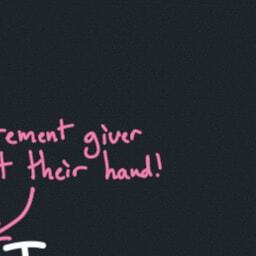 rement giver
t their hand!